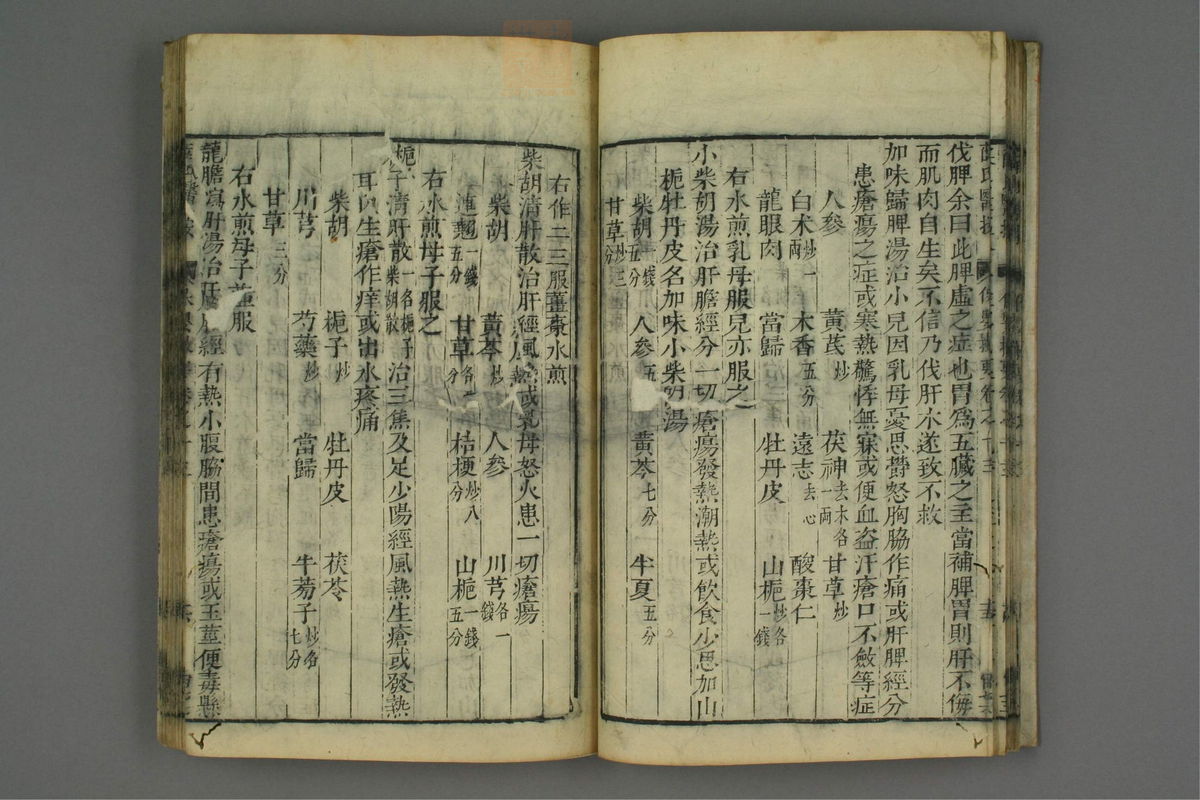 伐脾余曰此脾虛之症也胃為五臟之主當補脾胃則肝不侮
而肌肉自生矣不信乃伐肝木遂致不救
加味歸脾湯治小兒因乳母憂思鬱怒胸脇作痛或肝脾經分
患瘡瘍之症或寒熱驚悸無寐或便血盜汗瘡口不斂等症
人參 黃茋炒 茯神去木各一兩 甘草炒
白术炒一兩 木香五分 遠志去心 酸棗仁
龍眼肉 當歸 牡丹皮 山梔炒各一錢
右水煎乳母服兒亦服之
小柴胡湯治肝膽經分一切瘡瘍發熱潮熱或飲食少思加山
梔牡丹皮名加味小柴胡湯
柴胡一錢五分 人參五 黃芩七分 半夏五分
甘草炒三分
右作二三服薑棗水煎
柴胡清肝散治肝經風熱或乳母怒火患一切瘡瘍
柴胡 黃芩炒 人參 川芎各一錢
連翹一錢五分 甘草各 分 桔梗炒八分 山梔一錢五分
右水煎母子服之
梔子清肝散一名梔子柴胡散治三焦及足少陽經風熱生瘡或發熱
耳內生瘡作痒或出水疼痛
柴胡 梔子炒 牡丹皮 茯苓
川芎 芍藥炒 當歸 牛蒡子炒各七分
甘草三分
右水煎母子並服
龍膽瀉肝湯治肝膽經有熱小腹脇間患瘡瘍或玉莖便毒懸